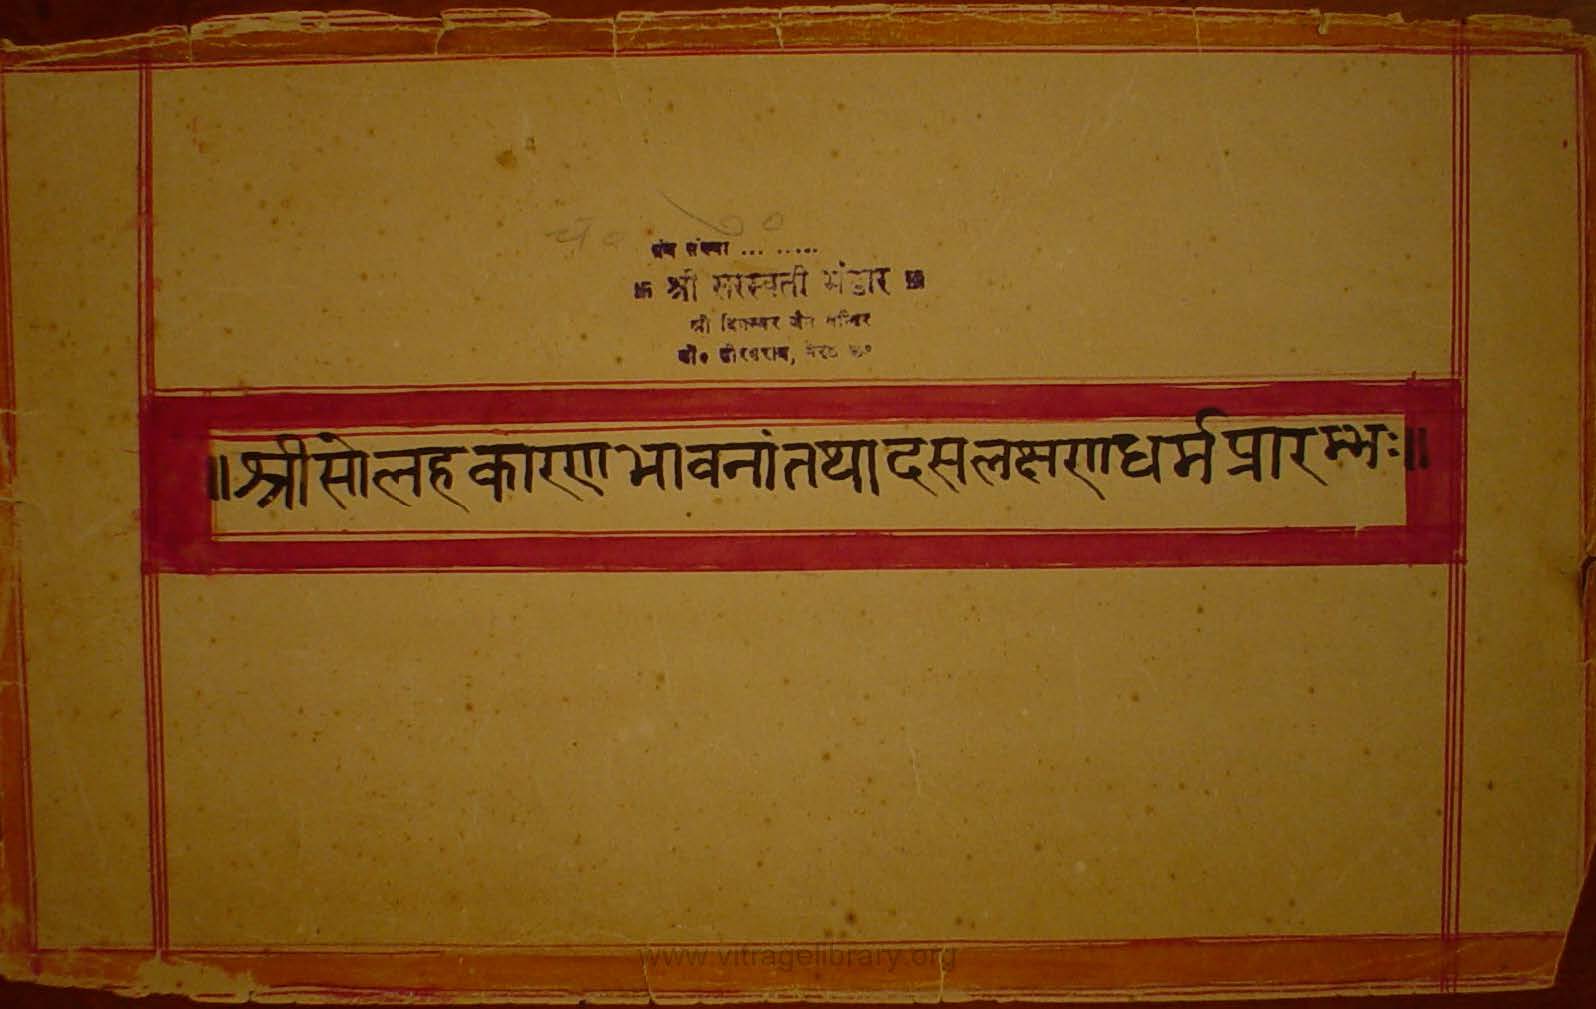 च० ७०
ग्रंथ संख्या ... .....
卐 श्री सरस्वती भंडार 卐
श्री दिगम्बर जैन मन्दिर
॥श्रीसोलहकारणभावनांतथादसलक्षणधर्मप्रारम्भः॥
www.vitragelibrary.org